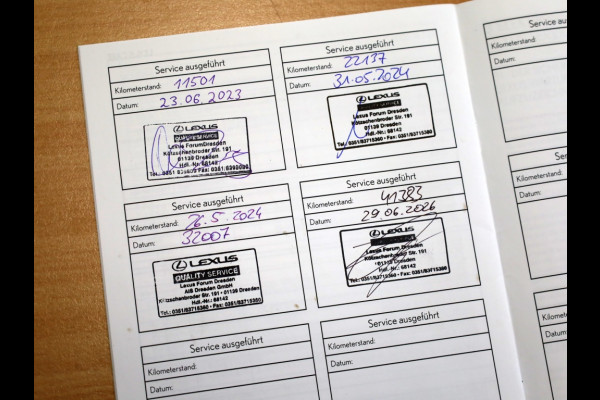 Service ausgeführt
Kilometerstand: 11501
Datum: 23.06.2023
LEXUS
QUALITY SERVICE
Lexus Forum Dresden
Kötzschenbroder Str. 191
01139 Dresden
Hdl.-Nr. 98142
Service ausgeführt
Kilometerstand: 22137
Datum: 31.05.2024
LEXUS
Lexus Forum Dresden
Kötzschenbroder Str. 191
01139 Dresden
Hdl.-Nr.: 98142
Tel.: 0351/83715360 • Fax: 0351/83715390
Service ausgeführt
Kilometerstand: 26.5.2024
Datum: 32007
LEXUS
QUALITY SERVICE
Lexus Forum Dresden
AIS Dresden GmbH
Kötzschenbroder Str. 191 • 01139 Dresden
Hdl.-Nr.: 98142
Tel.: 0351/83715360 • Fax: 0351/83715350
Service ausgeführt
Kilometerstand: 41383
Datum: 29.06.2026
LEXUS
Lexus Forum Dresden
Kötzschenbroder Str. 191
Dresden
Hdl.-Nr.: 98142
Service ausgeführt
Kilometerstand:
Datum:
Service ausgeführt
Kilometerstand:
Datum:
Service au
Kilometerstand:
Datum:
Service
Kilometerstand:
Datum:
Kilometersta
Datum: